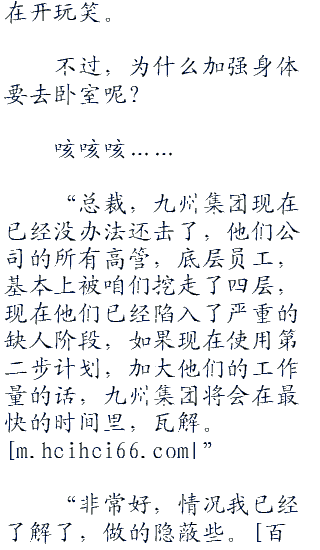 在开玩笑。
不过，为什么加强身体
要去卧室呢？
咳咳咳……
“总裁，九州集团现在
已经没办法还击了，他们公
司的所有高管，底层员工，
基本上被咱们挖走了四层，
现在他们已经陷入了严重的
缺人阶段，如果现在使用第
二步计划，加大他们的工作
量的话，九州集团将会在最
快的时间里，瓦解。
[m.hcihci66.com|”
“非常好，情况我已经
了解了，做的隐蔽些。[百